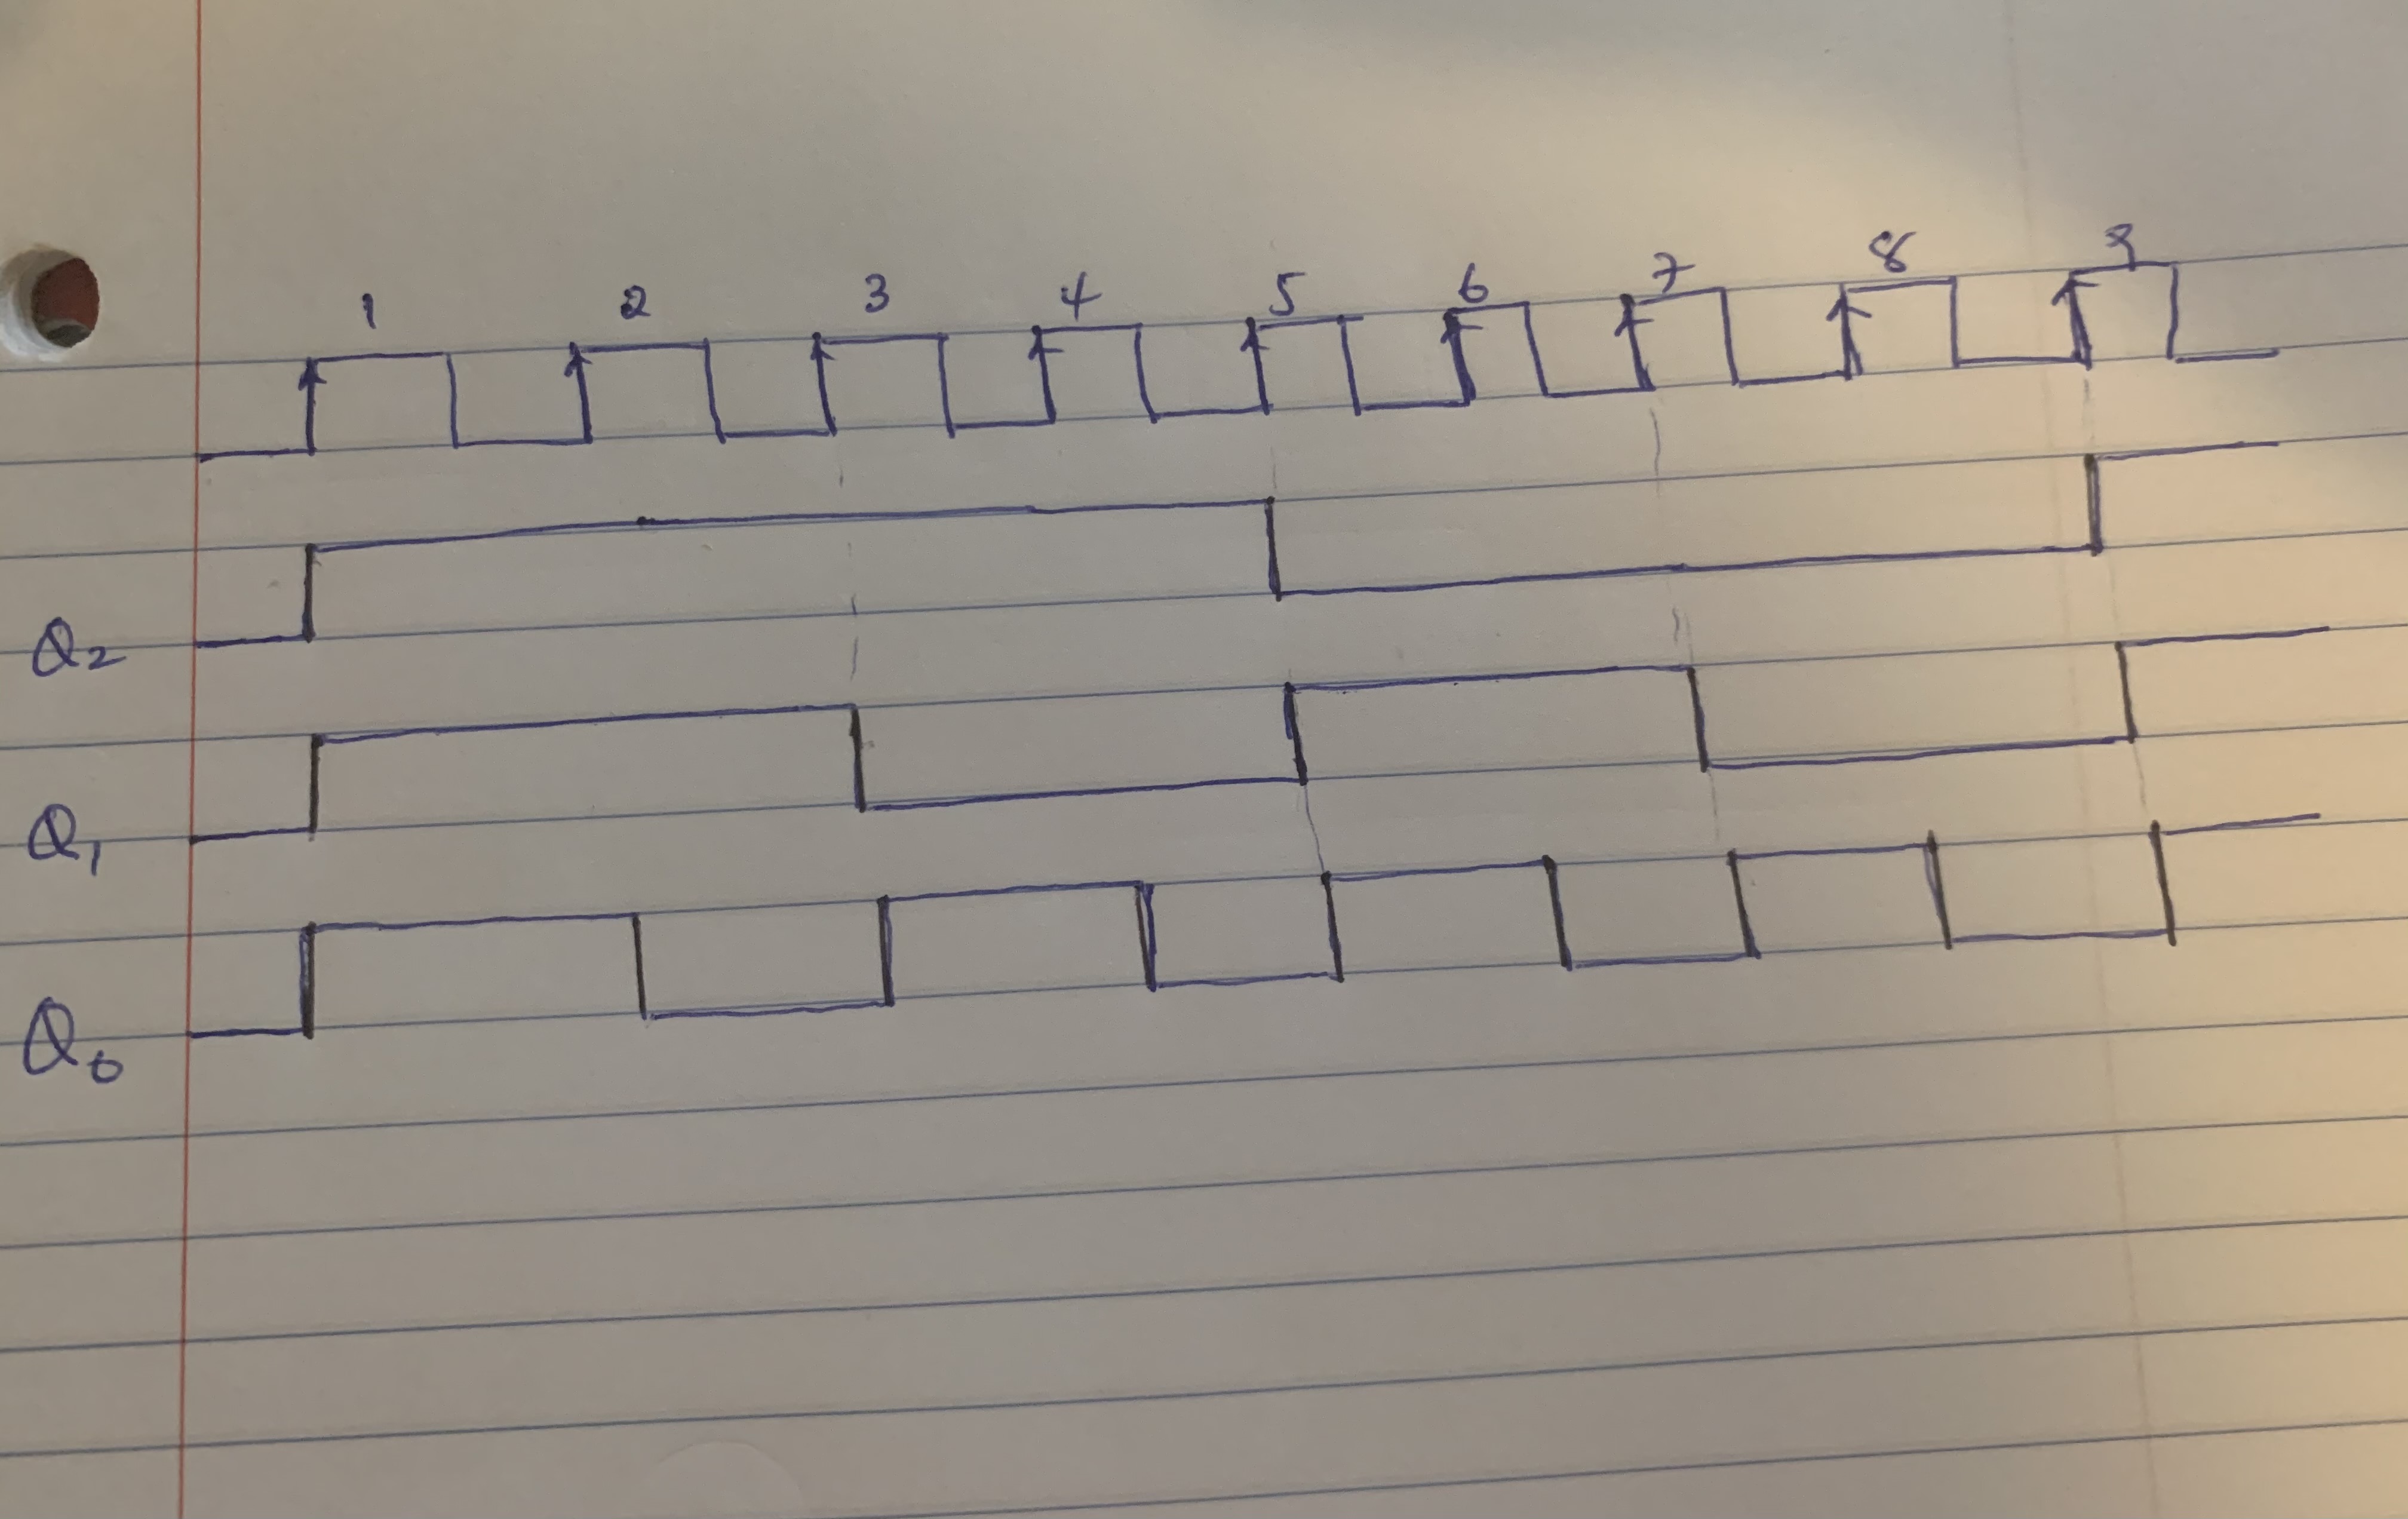 1 2 3 4 5 6 7 8 9
Q2
Q1
Q0